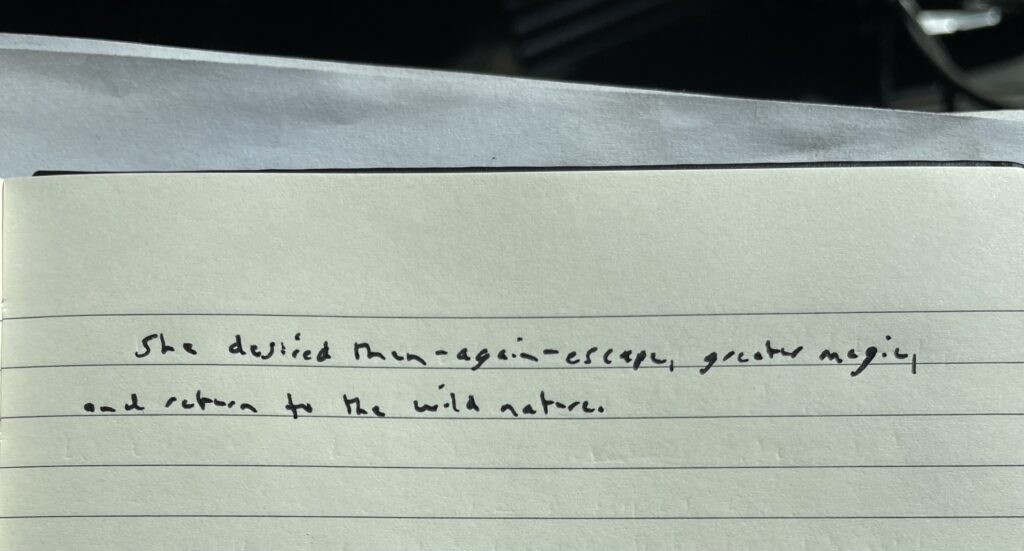 She desired then-again-escape, greater magic,
and return to the wild nature.